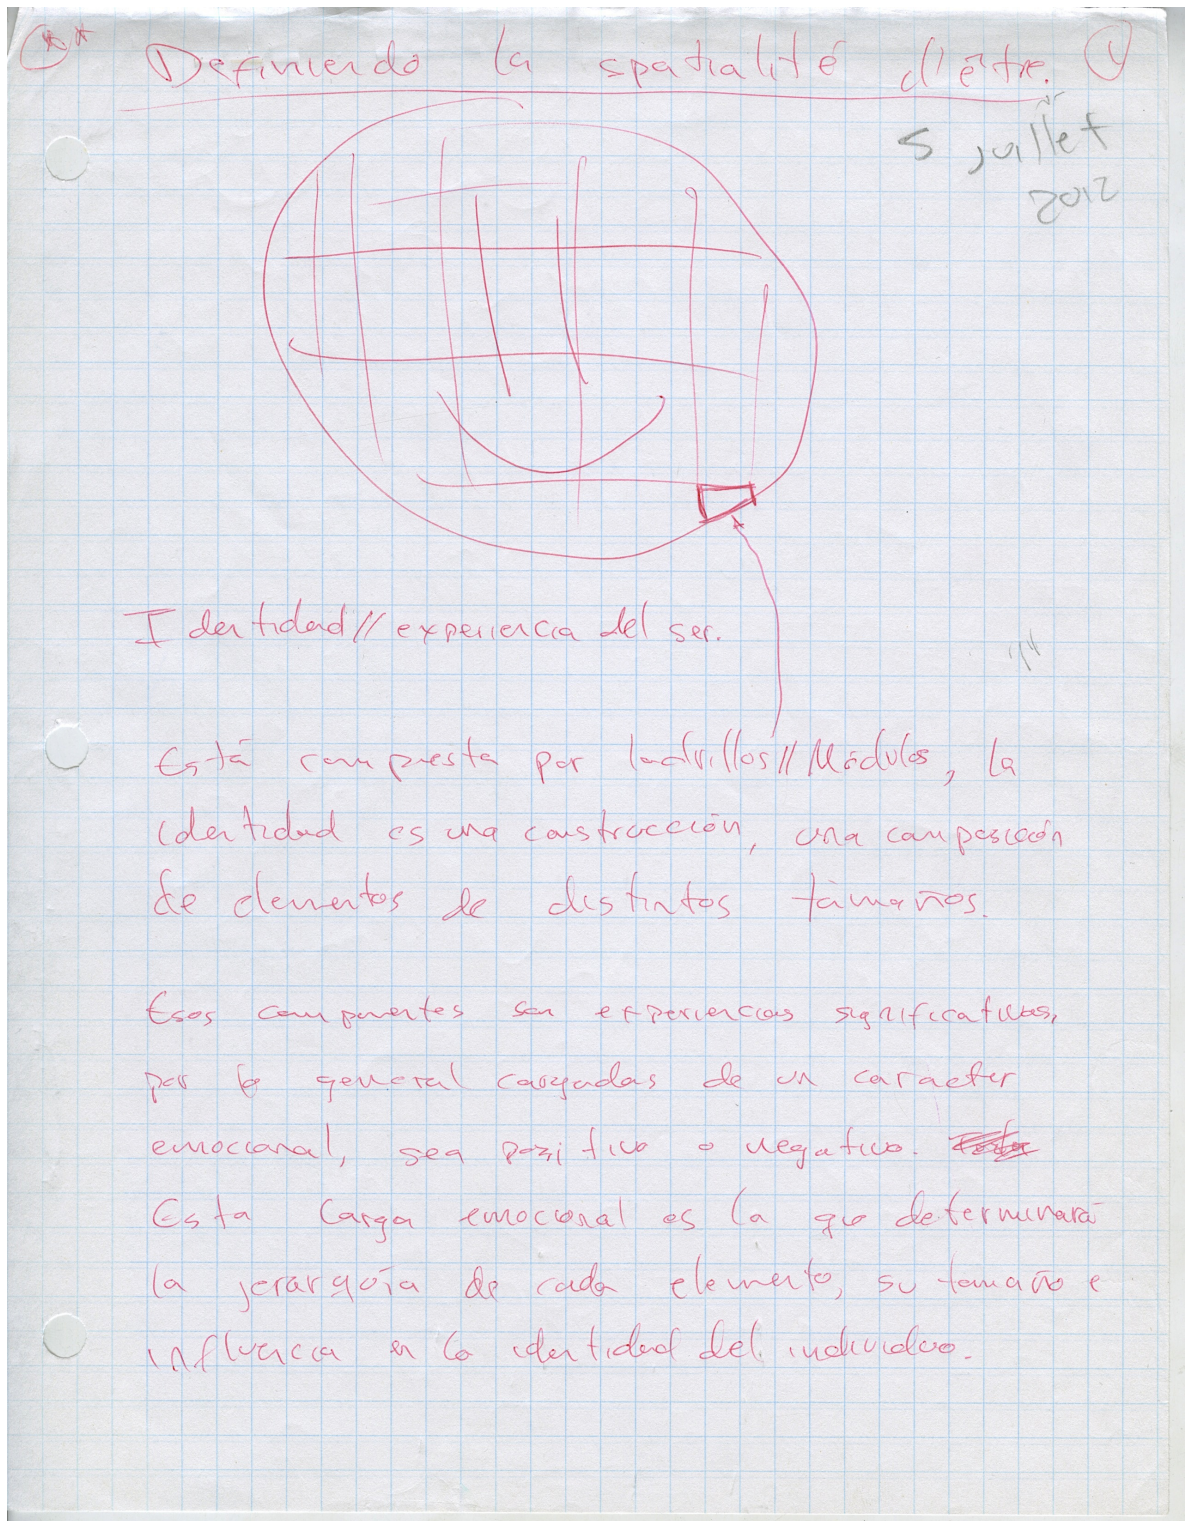 Definiendo la spatialité d'être.
5 juillet
2012
Identidad // experiencia del ser.
Está compuesta por ladrillos // Módulos, la
identidad es una construcción, una composición
de elementos de distintos tamaños.
Esos componentes son experiencias significativas,
por lo general cargadas de un caracter
emocional, sea pozitivo o negativo.
Esta carga emocional es la que determinará
la jerarquía de cada elemento, su tamaño e
influencia en la identidad del individuo.